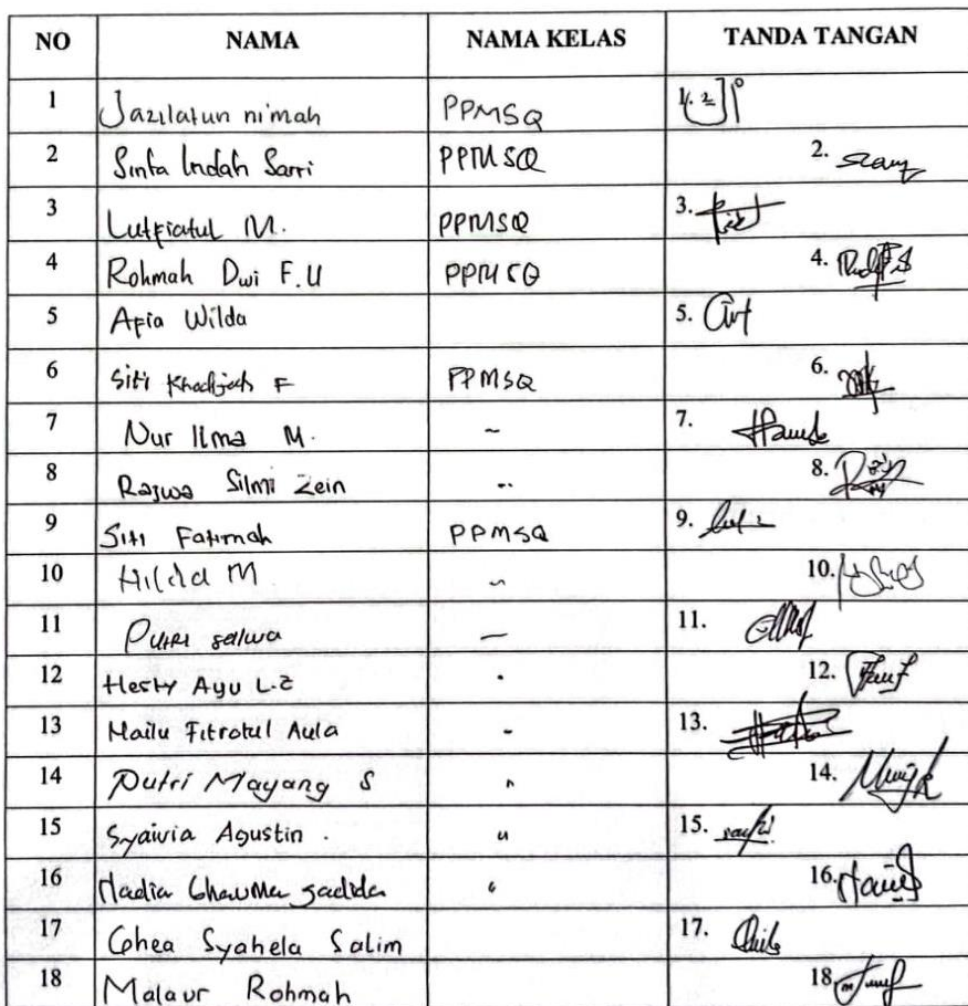 NO NAMA NAMA KELAS TANDA TANGAN
1 Jazilatun nimah PPMSQ 1.
2 Sinta Indah Sari PPMSQ 2.
3 Lutfiatul M. PPMSQ 3.
4 Rohmah Dwi F.U PPMSQ 4.
5 Afia Wilda 5.
6 Siti Khadijah F PPMSQ 6.
7 Nur Ilma M. 7.
8 Rajwa Silmi Zein 8.
9 Siti Fatimah PPMSQ 9.
10 Hilda M 10.
11 Putri salwa 11.
12 Hesty Ayu L.Z 12.
13 Naila Fitrotul Aula 13.
14 Putri Mayang S 14.
15 Agustin. 15.
16 Nadia 16.
17 Syahela Salim 17.
18 Rohmah 18.